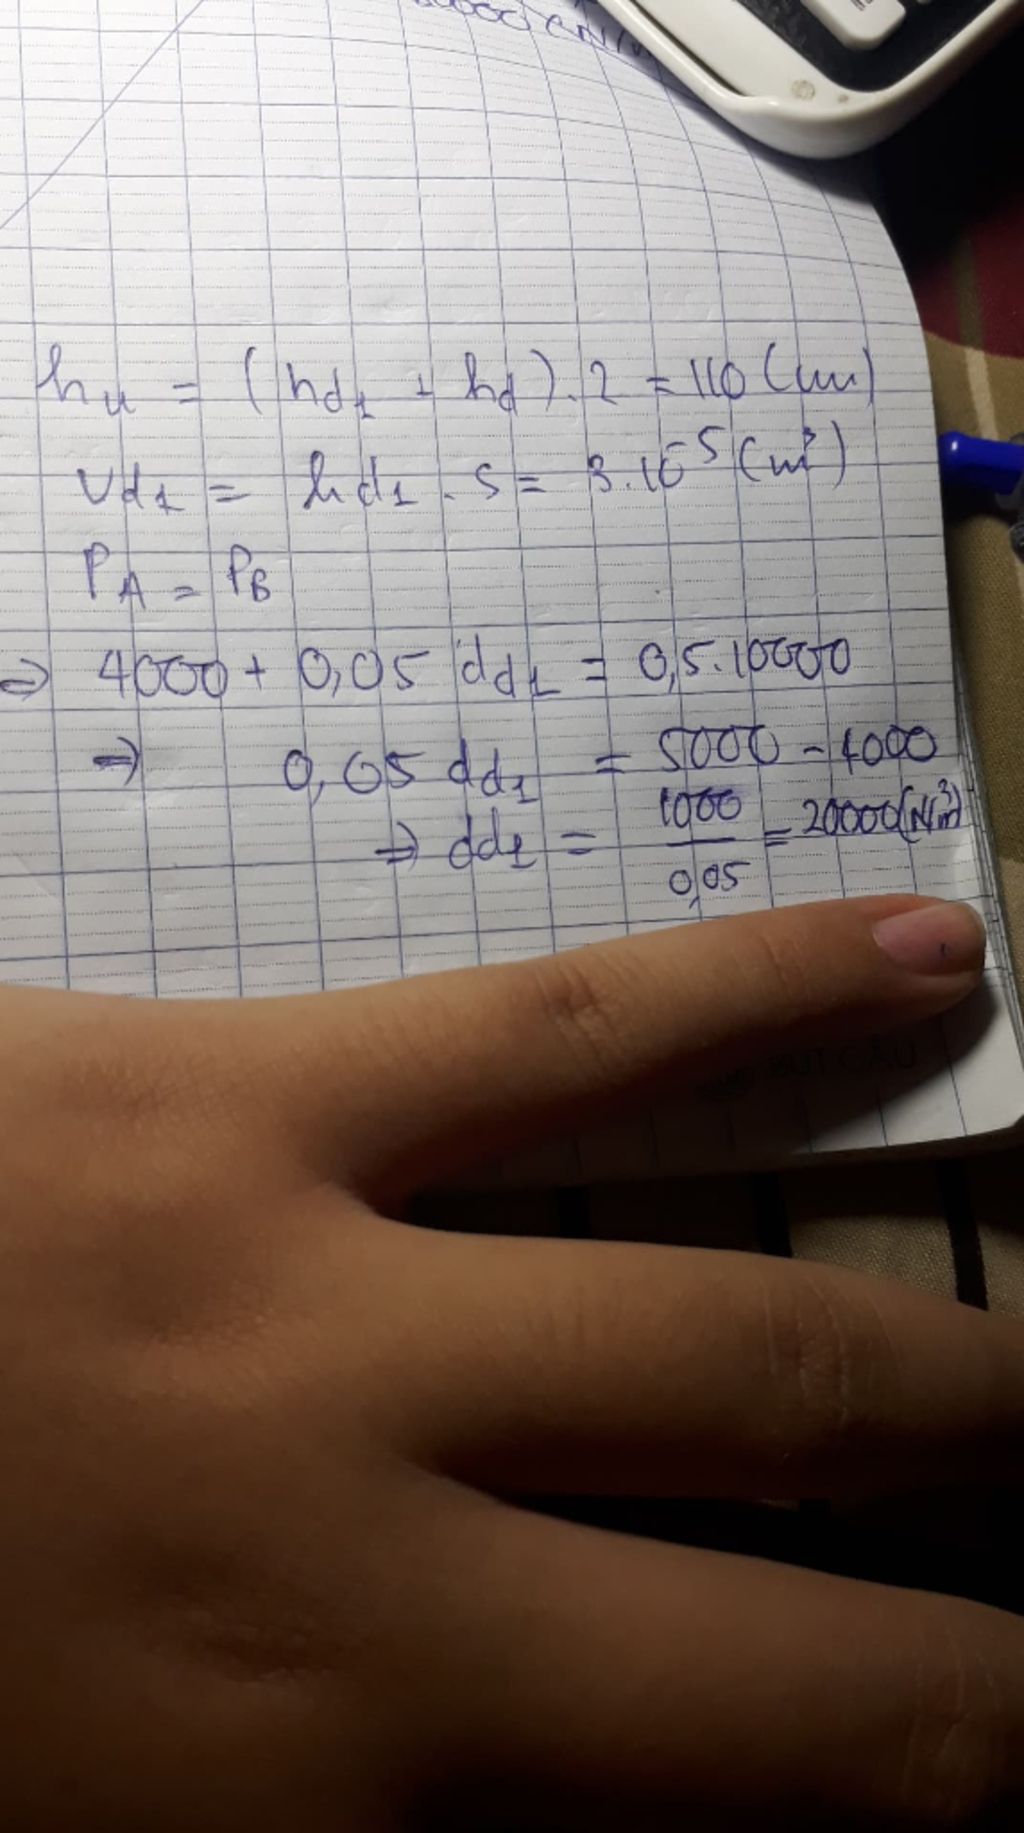 hu = (hd1 + hd).2 = 110 (cm)
Vd1 = hd1 . S = 3.10^-5 (m³)
PA = PB
⇒ 4000 + 0,05 dd1 = 0,5.10000
⇒ 0,05 dd1 = 5000 - 4000
⇒ dd1 = 1000/0,05 = 20000 (N/m³)